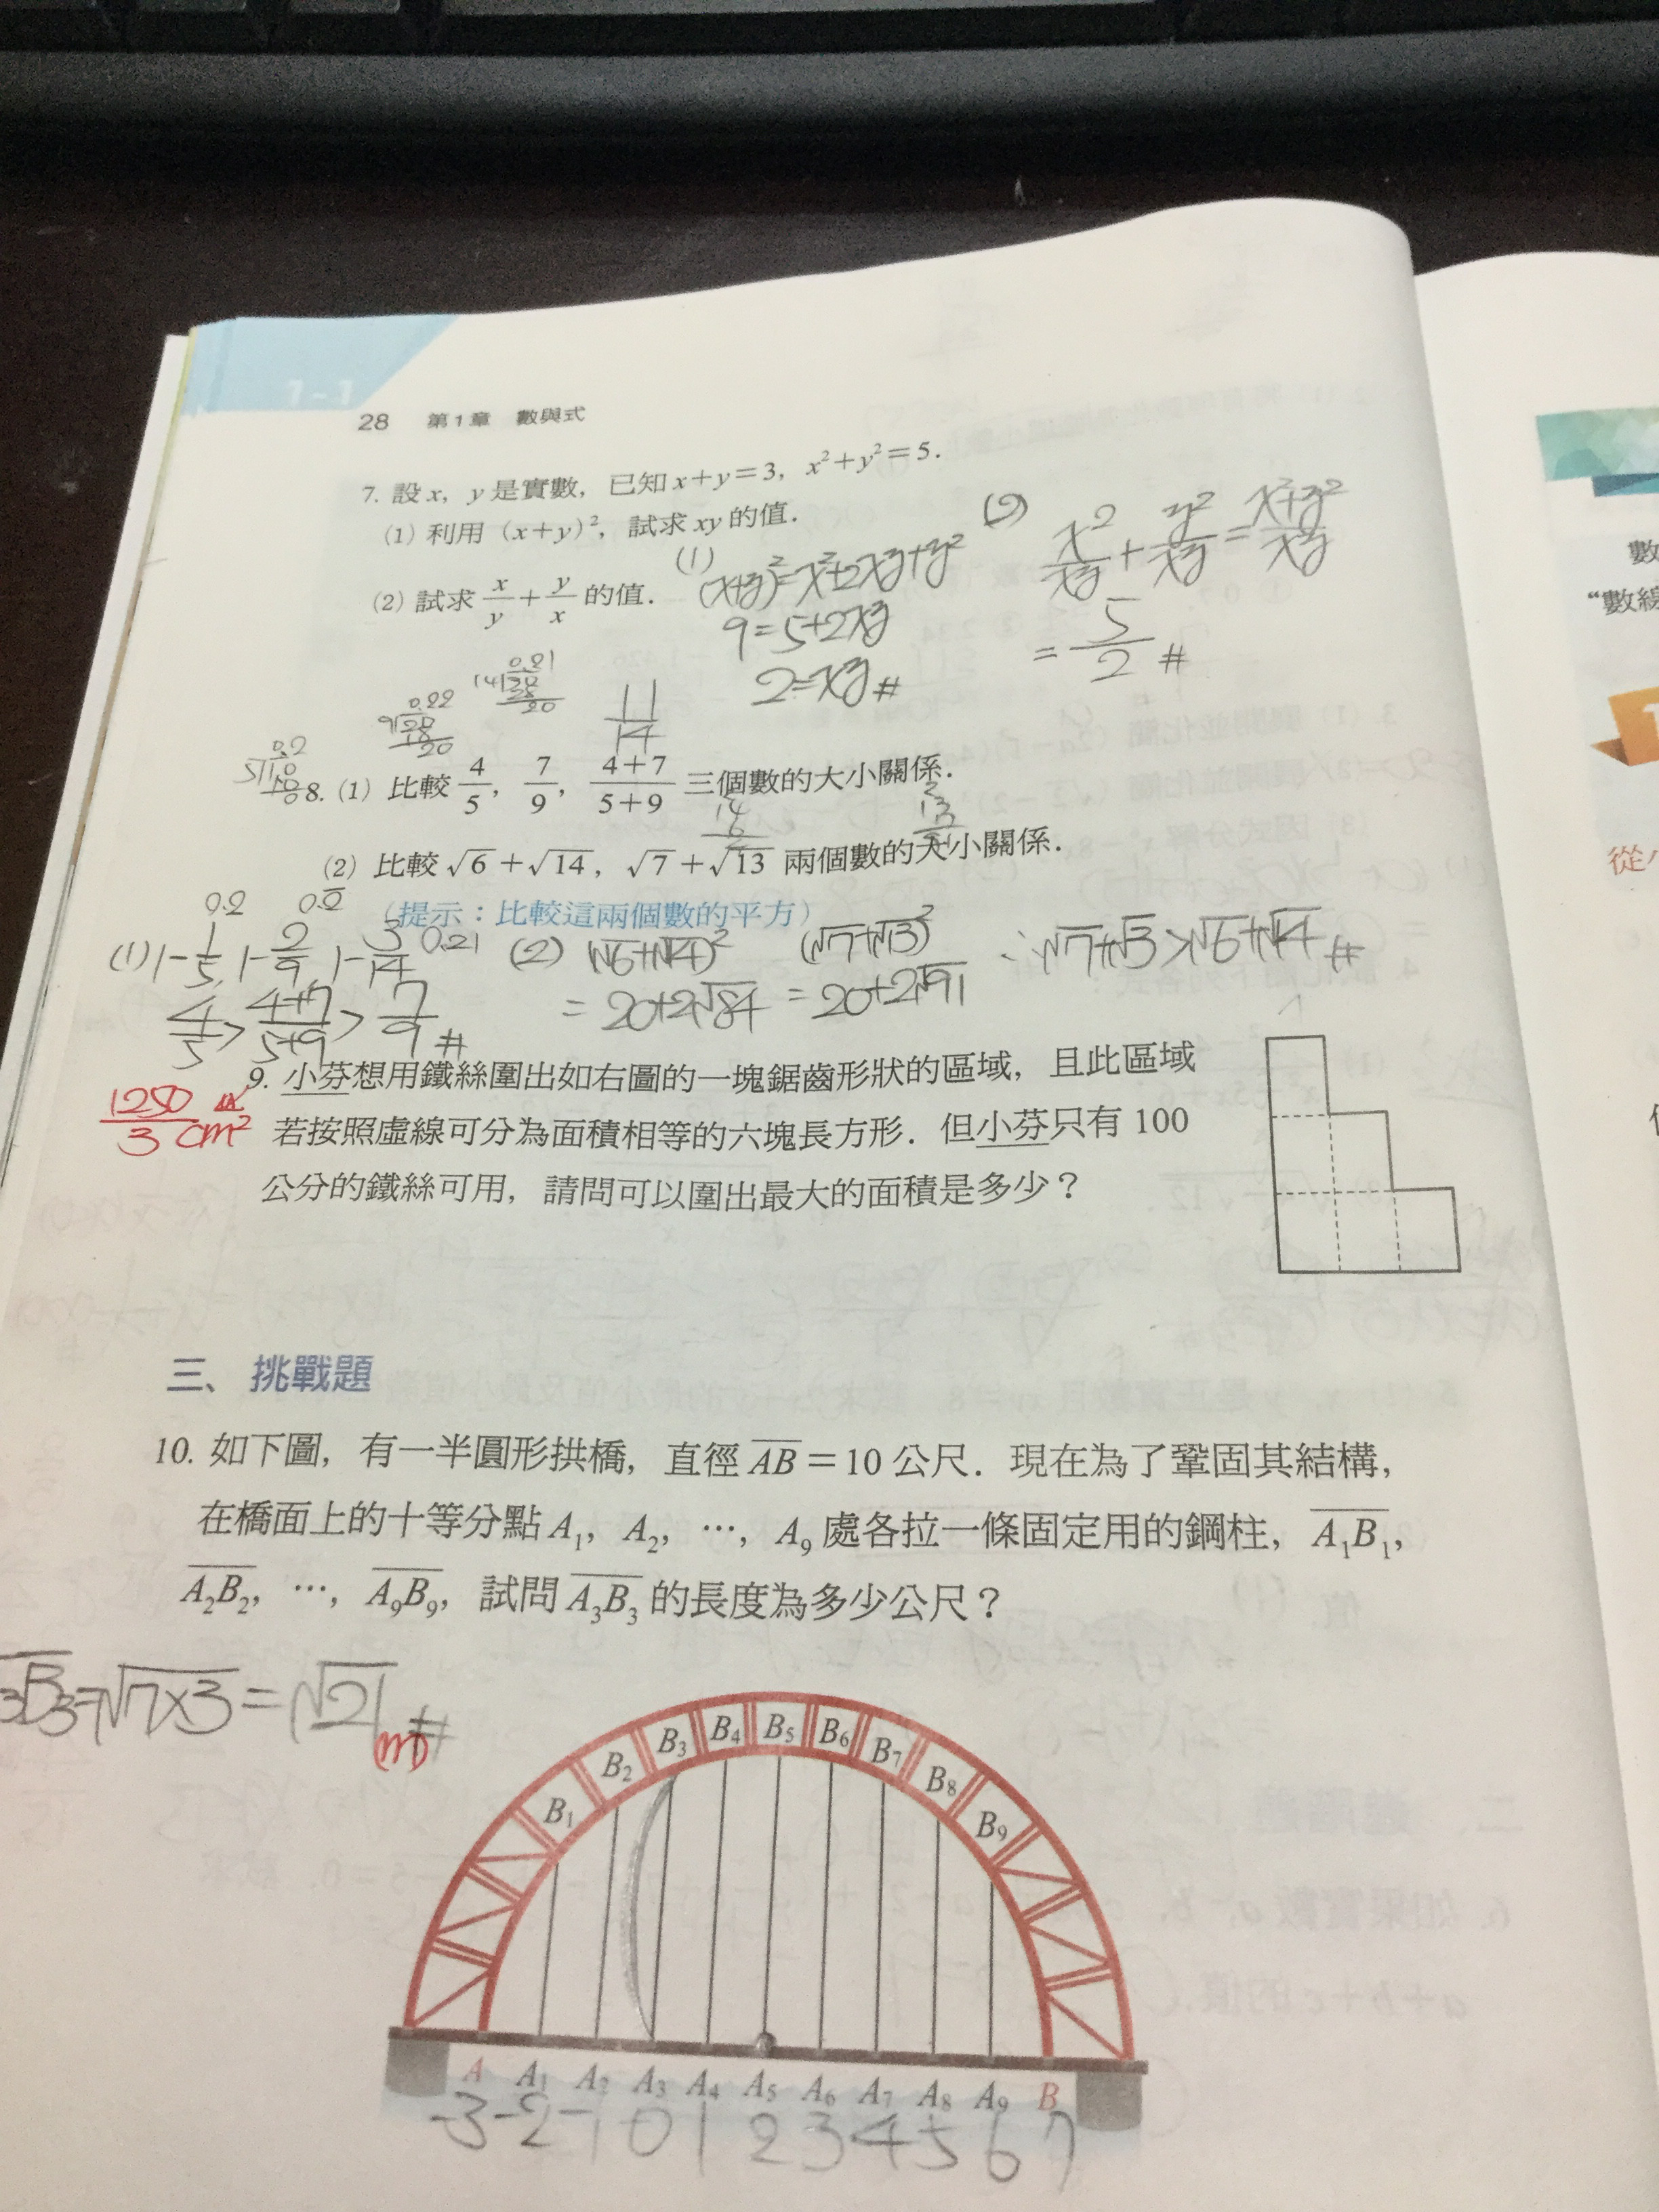 1-1
28 第1章 數與式
7. 設 x, y 是實數, 已知 x+y=3, x²+y²=5.
(1) 利用 (x+y)², 試求 xy 的值.
(2) 試求 x/y + y/x 的值.
(1)
(x+y)²=x²+2xy+y²
9=5+2xy
2=xy #
(2) x²/xy + y²/xy = x²+y²/xy
= 5/2 #
11/14
8. (1) 比較 4/5, 7/9, 4+7/5+9 三個數的大小關係.
(2) 比較 √6+√14, √7+√13 兩個數的大小關係.
(提示:比較這兩個數的平方)
0.2 0.2̅
(1) 1-1/5, 1-2/9, 1-3/14 0.21
4/5 > 4+7/5+9 > 7/9 #
(2) (√6+√14)² (√7+√13)²
= 20+2√84 = 20+2√91
∴ √7+√13 > √6+√14 #
9. 小芬想用鐵絲圍出如右圖的一塊鋸齒形狀的區域, 且此區域
若按照虛線可分為面積相等的六塊長方形. 但小芬只有 100
公分的鐵絲可用, 請問可以圍出最大的面積是多少?
1250/3 cm²
三、挑戰題
10. 如下圖, 有一半圓形拱橋, 直徑 AB = 10 公尺. 現在為了鞏固其結構,
在橋面上的十等分點 A₁, A₂, …, A₉ 處各拉一條固定用的鋼柱, A₁B₁,
A₂B₂, …, A₉B₉, 試問 A₃B₃ 的長度為多少公尺?
₃B₃=√7×3=√21 (m) #
B₁ B₂ B₃ B₄ B₅ B₆ B₇ B₈ B₉
A A₁ A₂ A₃ A₄ A₅ A₆ A₇ A₈ A₉ B
-3 -2 -1 0 1 2 3 4 5 6 7
數
“數線